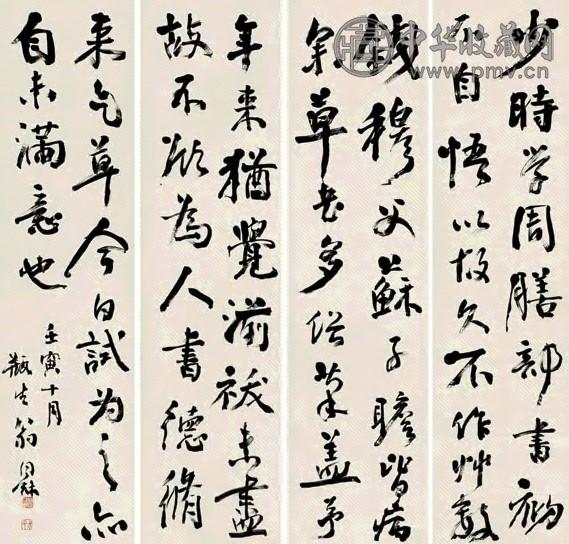 中华收藏网
www.pmv.cn
少時学周膳部書初
不自悟以故久不作艸數
錢穆父蘇子瞻皆病
余草書多俗筆盖予
年来猶覺湔祓未盡
故不欲為人書德脩
来乞草今日試為之亦
自未滿意也
壬寅十月
瓶生翁同龢